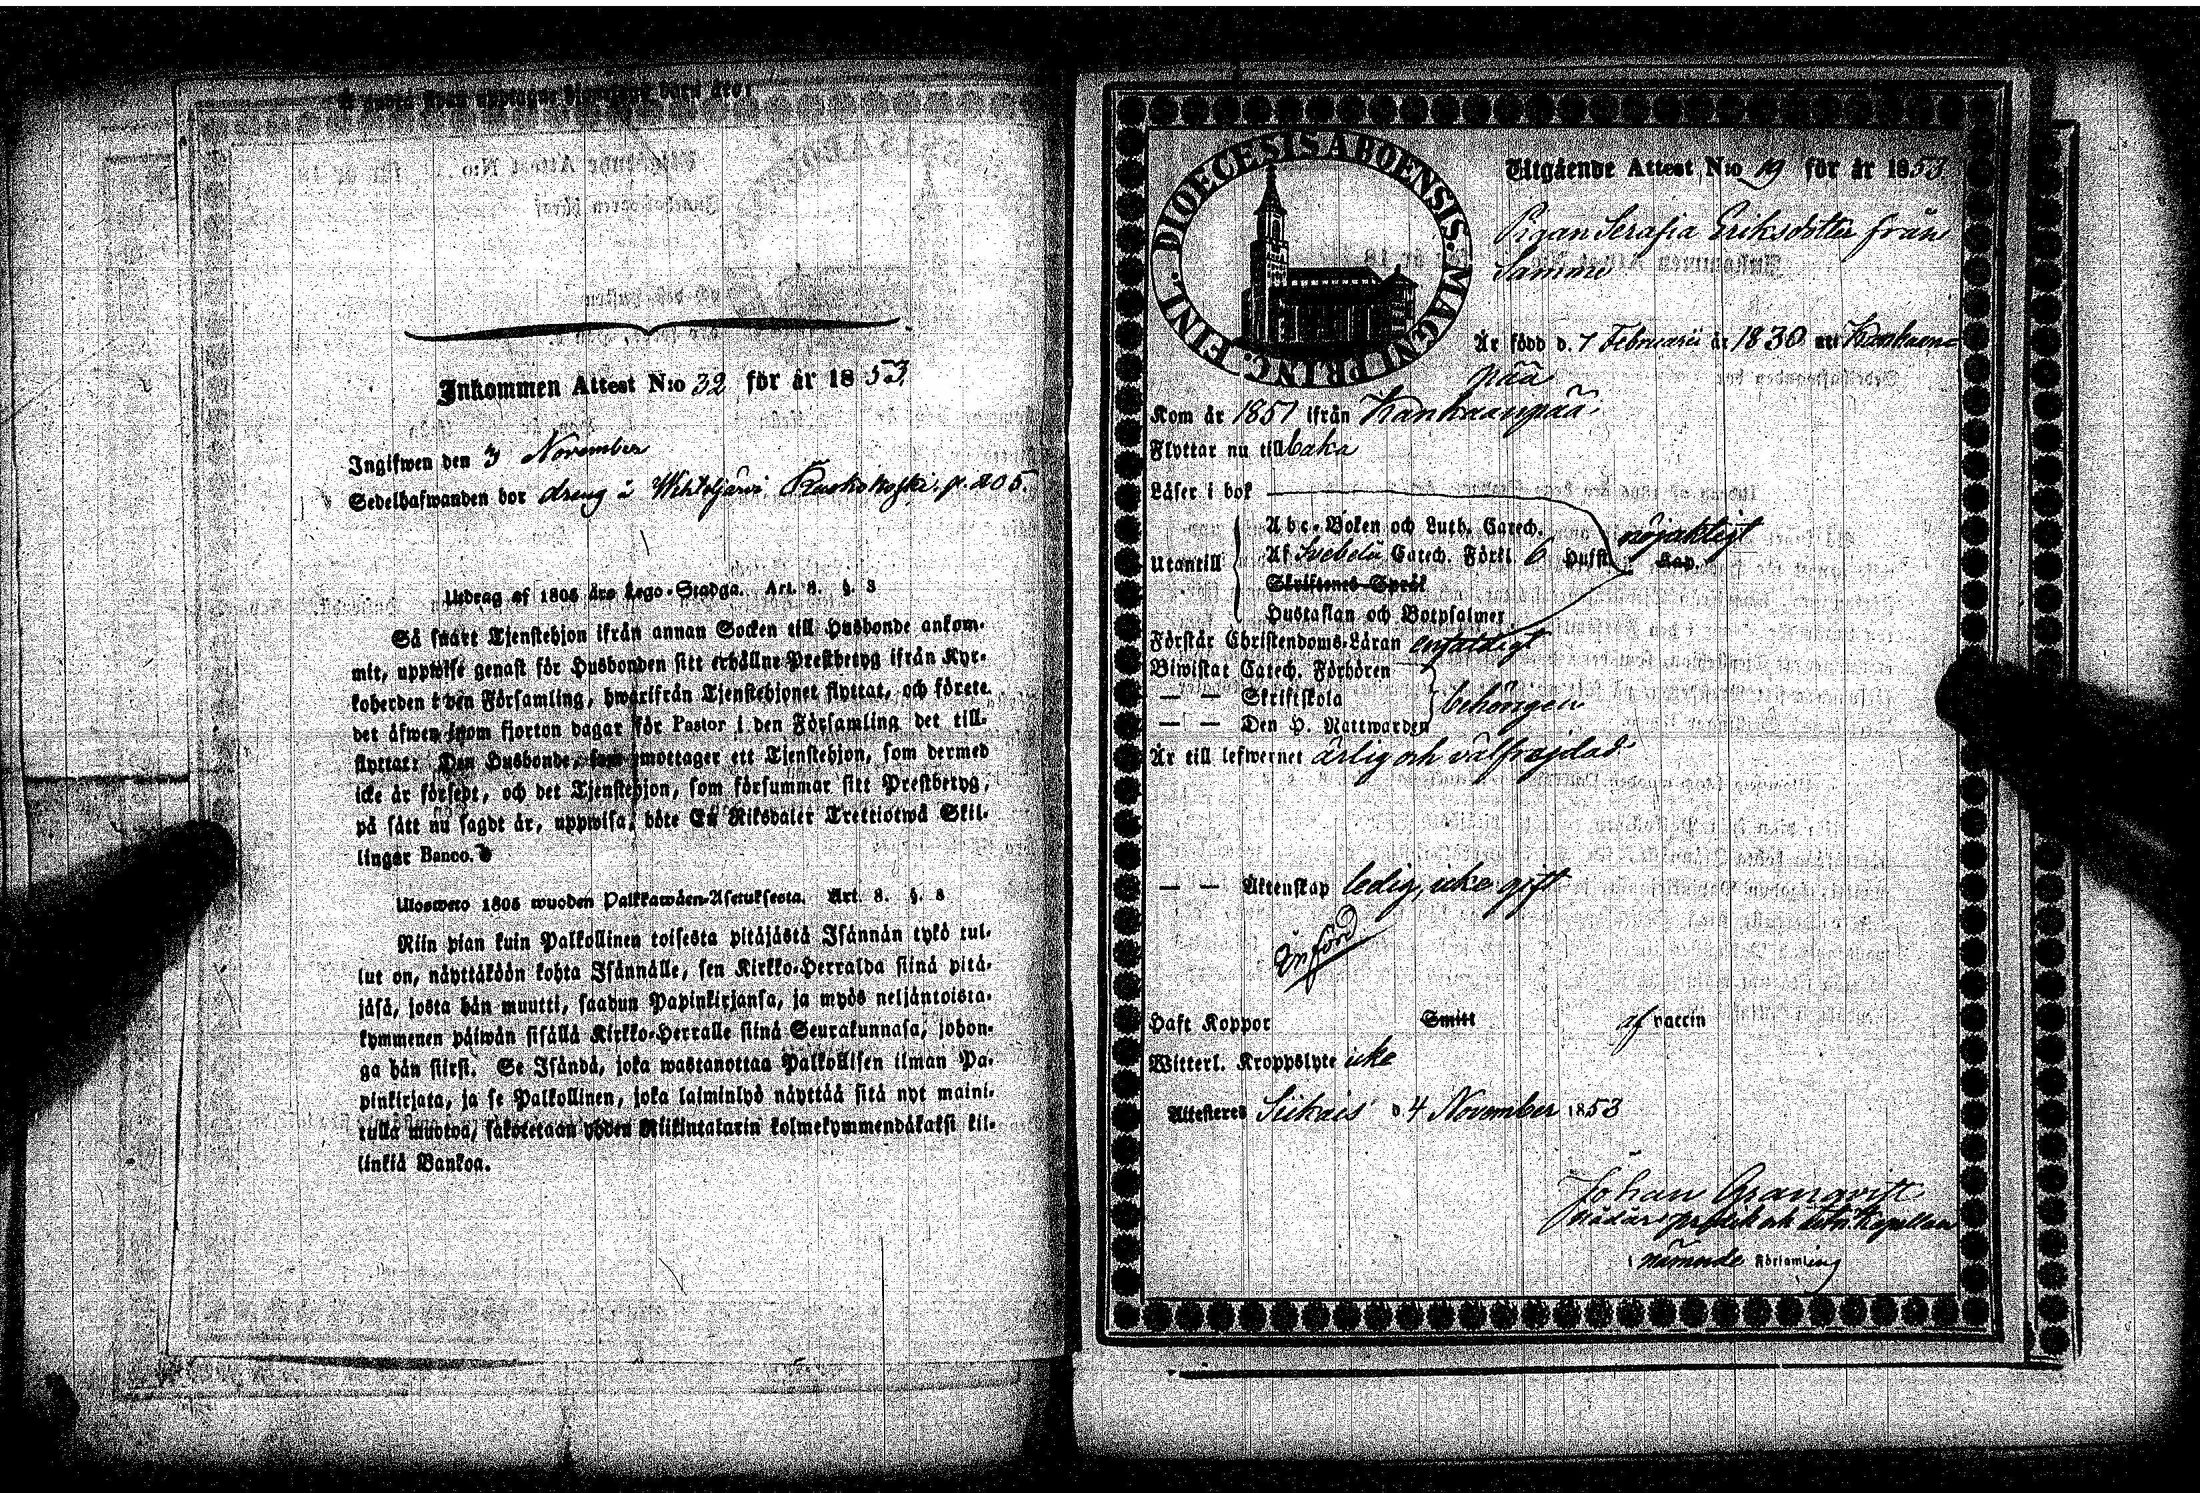 Inkommen Attest N:o 32 för år 1853.
Ingifwen den 3 November
Sedelhafwanden bor dreng å Wihteljärvi Ruohokoski p. 205.
Utdrag af 1805 års Lego-Stadga. Art. 8. §. 8
Så snart Tjenstehjon ifrån annan Socken till Husbonde ankom-
mit, uppwise genast för Husbonden sitt erhållne Prestbetyg ifrån Kyr-
koherden i den Församling, hwarifrån Tjenstehjonet flyttat, och förete
det äfwen inom fjorton dagar för Pastor i den Församling det till-
flyttat: Den Husbonde, som emottager ett Tjenstehjon, som dermed
icke är försedt, och det Tjenstehjon, som försummar sitt Prestbetyg,
på sätt nu sagdt är, uppwisa, böte En Riksdaler Trettiotwå Skil-
lingar Banco.
Ulosweto 1805 wuoden Palkkawäen-Asetuksesta. Art. 8. §. 8
Niin pian kuin Palkollinen toisesta pitäjästä Isännän tykö tul-
lut on, näyttäköön kohta Isännälle, sen Kirkko-Herralda siinä pitä-
jäsä, josta hän muutti, saadun Papinkirjansa, ja myös neljäntoista-
kymmenen päiwän sisällä Kirkko-Herralle siinä Seurakunnasa, johon-
ga hän siirsi. Se Isändä, joka wastanottaa Palkollisen ilman Pa-
pinkirjata, ja se Palkollinen, joka laiminlyö näyttää sitä nyt maini-
tulla muotoa, sakotetaan yhden Riikintalarin kolmekymmendäkaksi kil-
linkiä Bankoa.
FINL. DIOECESIS ABOENSIS. MAGNI PRINC.
Utgående Attest N:o 19 för år 1853
Pigan Serafia Eriksdotter från
Samme
Är född d. 7 Februarii år 1830 uti Kankaan=
pää
Kom år 1851 ifrån Kankaanpää
Flyttar nu tillbaka
Läser i bok
nöjaktigt
Utantill
Abc-Boken och Luth. Catech.
Af Svebelii Catech. Förkl. 6 Hufst. Kap.
Skriftenes Språk
Hustaflan och Botpsalmer
Förstår Christendoms-Läran enfaldigt
Biwistat Catech. Förhören
— — Skriftskola
behörigen
— — Den H. Nattwarden
Är till lefwernet ärlig och välfrejdad
— — Äktenskap ledig, icke gift
Införd
Haft Koppor Smitt af vaccin
Witterl. Kroppslyte icke
Attesteras Siikais d. 4 November 1853
Johan Granqvist
i nämnde Församling